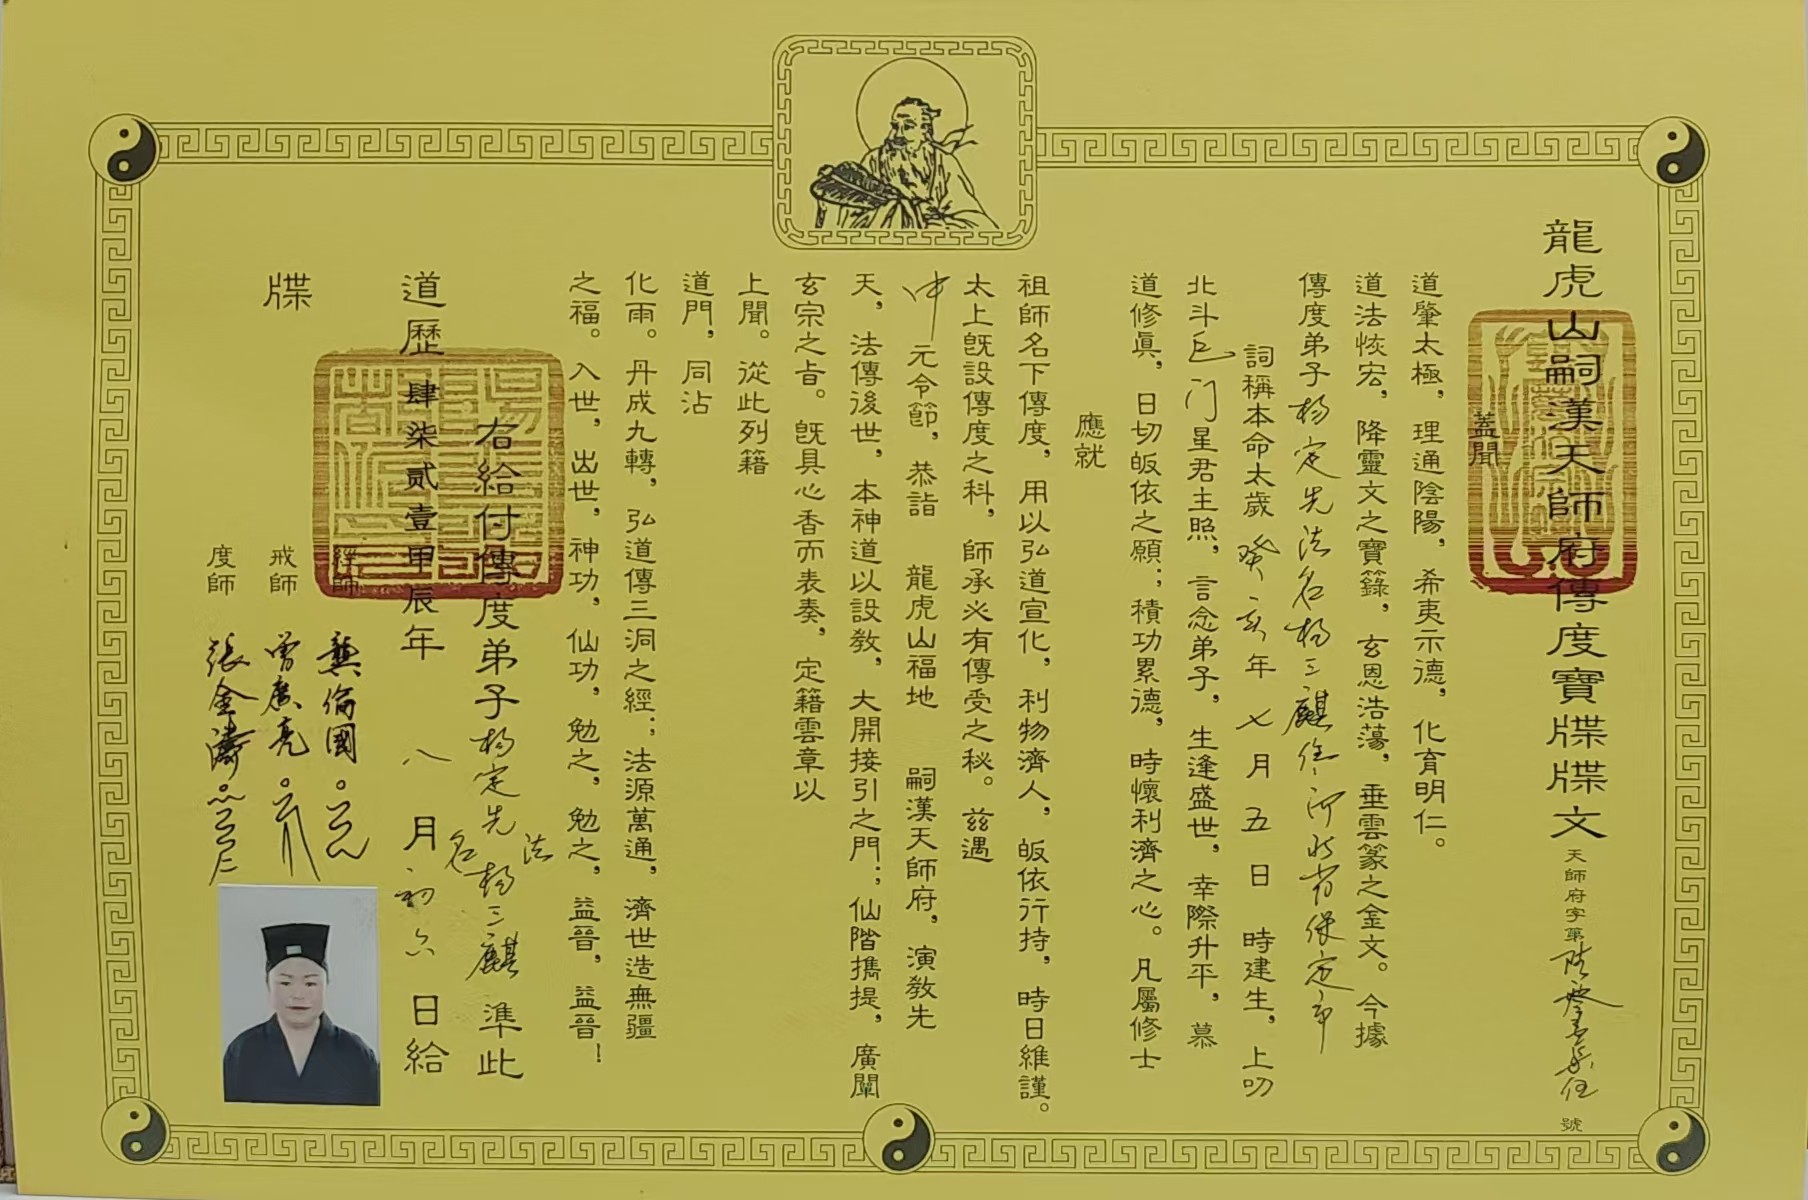 龍虎山嗣漢天師府傳度寶牒牒文
天師府字第 號
蓋聞
道肇太極，理通陰陽，希夷示德，化育明仁。
道法恢宏，降靈文之寶籙，玄恩浩蕩，垂雲篆之金文。今據
傳度弟子楊定先法名楊三麒住河北省保定市
詞稱本命太歲癸亥年七月五日 時建生，上叨
北斗巨门星君主照，言念弟子，生逢盛世，幸際升平，慕
道修眞，日切皈依之願；積功累德，時懷利濟之心。凡屬修士
應就
祖師名下傳度，用以弘道宣化，利物濟人，皈依行持，時日維謹。
太上既設傳度之科，師承必有傳受之秘。兹遇
中元令節，恭詣 龍虎山福地 嗣漢天師府，演教先
天，法傳後世，本神道以設教，大開接引之門；仙階攜提，廣闡
玄宗之旨。既具心香而表奏，定籍雲章以
上聞。從此列籍
道門，同沾
化雨。丹成九轉，弘道傳三洞之經；法源萬通，濟世造無疆
之福。入世，出世，神功，仙功，勉之，勉之，益晉，益晉！
右給付傳度弟子楊定先法名楊三麒準此
道歷肆柒贰壹甲辰年八月初六日給
牒
經師 龔倫國
戒師 曾廣亮
度師 張金濤